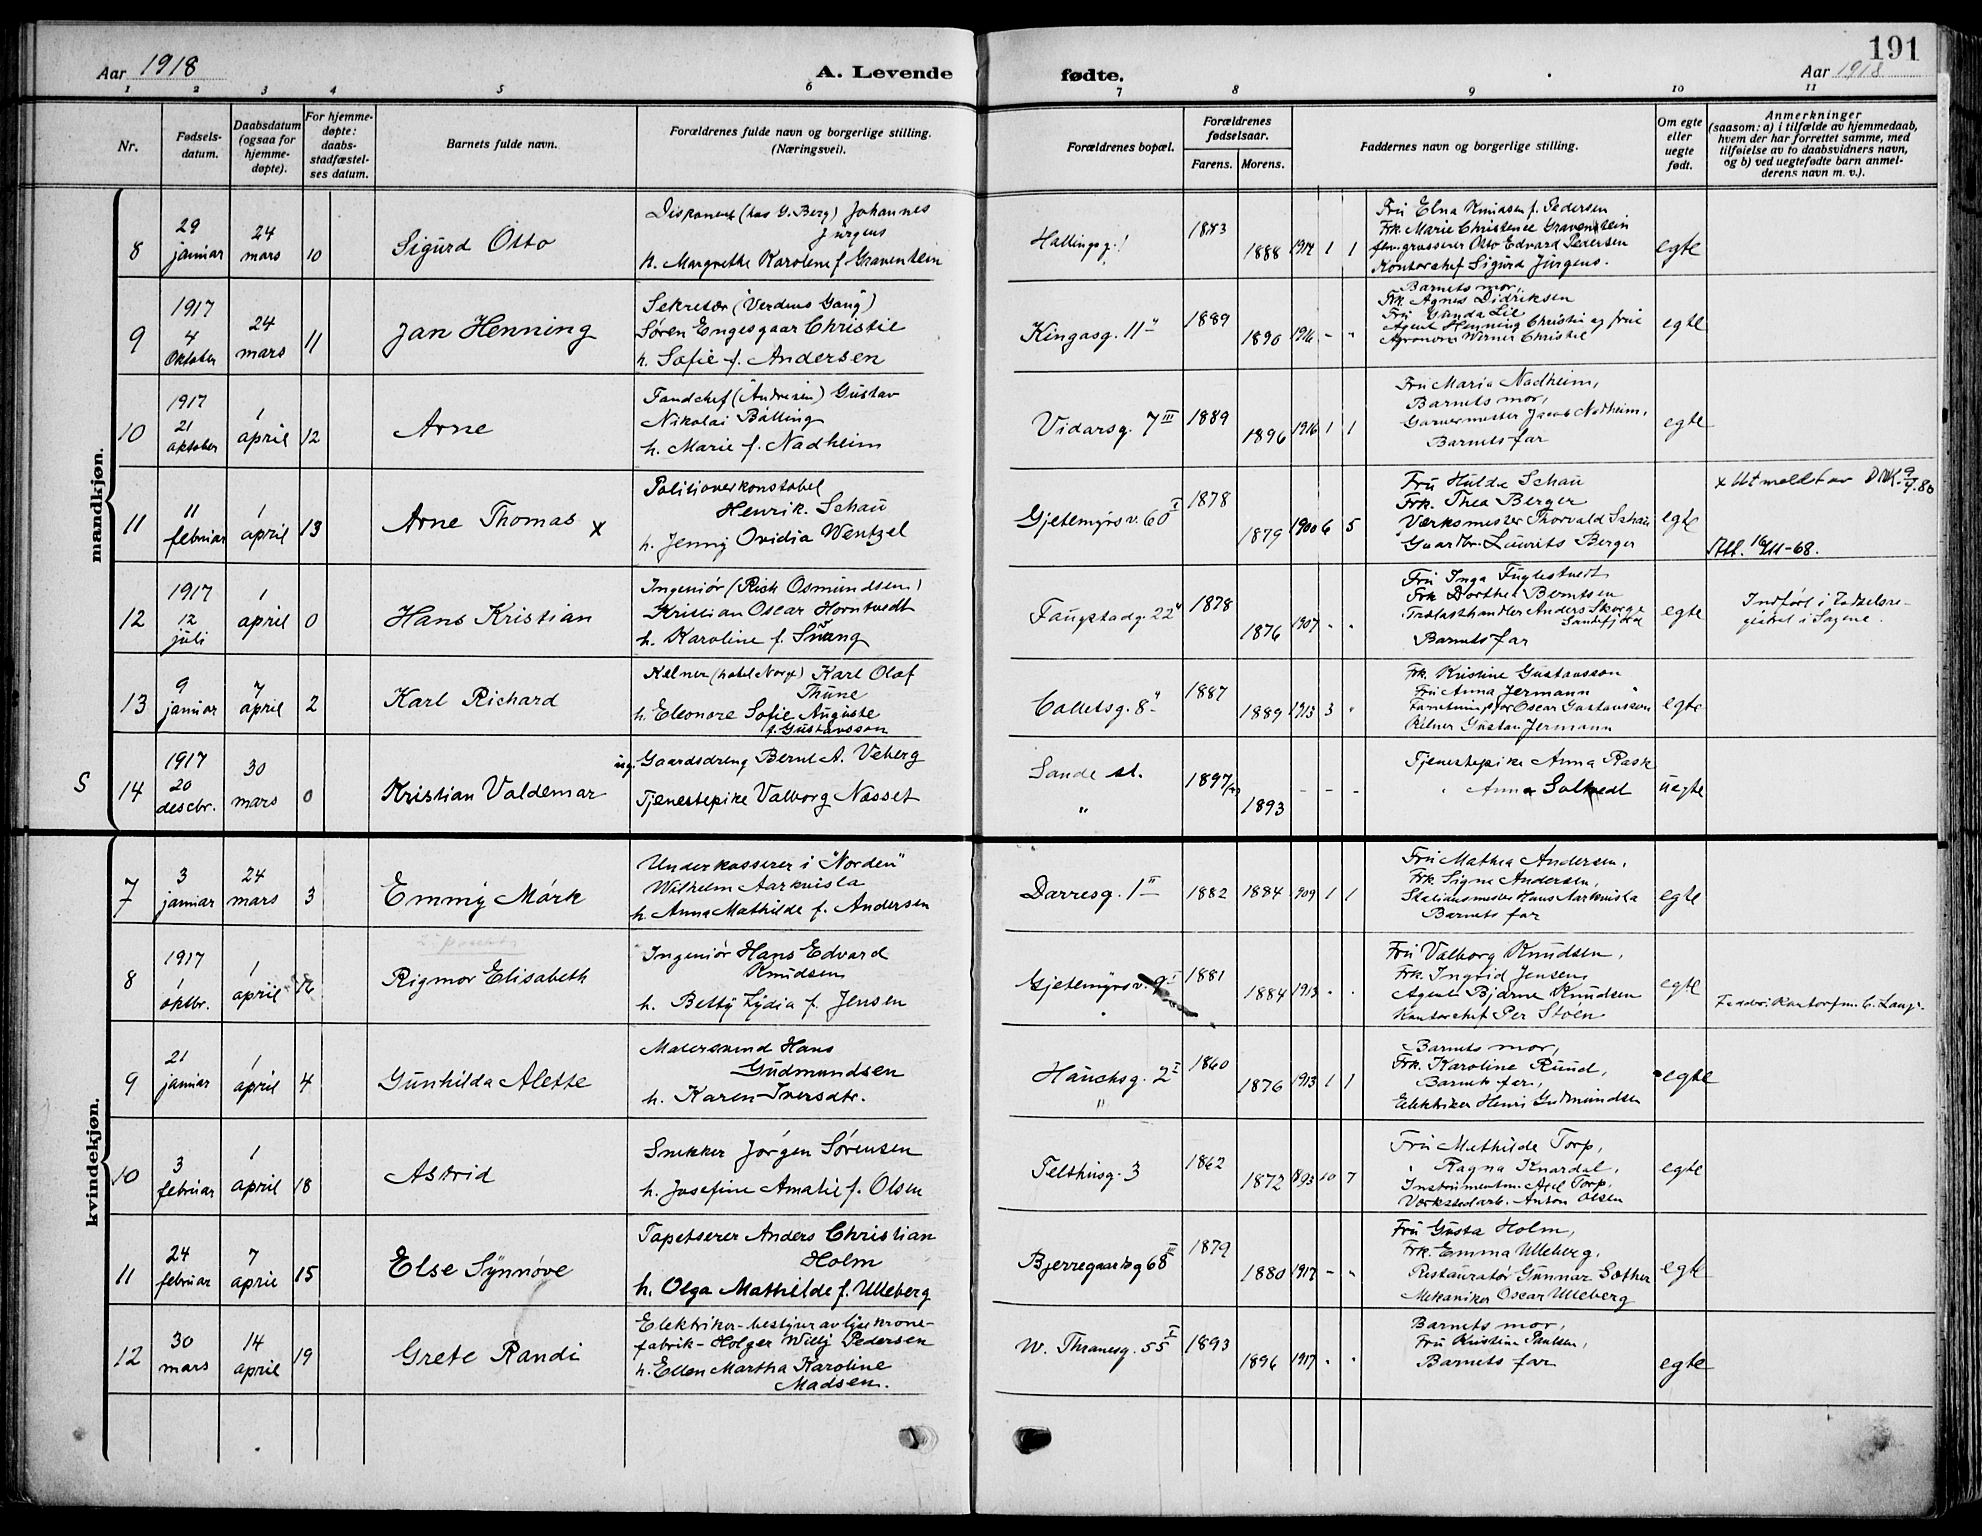 Aar 1918
A. Levende
fødte.
191
Aar 1918
1 2 3 4 5 6 7 8 9 10 11
Nr.
Fødsels-
datum.
Daabsdatum
(ogsaa for
hjemme-
døpte).
For hjemme-
døpte:
daabs-
stadfæstel-
ses datum.
Barnets fulde navn.
Forældrenes fulde navn og borgerlige stilling.
(Næringsvei).
Forældrenes bopæl.
Forældrenes
fødselsaar.
Farens. Morens.
Faddernes navn og borgerlige stilling.
Om egte
eller
uegte
født.
Anmerkninger
(saasom: a) i tilfælde av hjemmedaab,
hvem der har forrettet samme, med
tilføielse av to daabsvidners navn,
og b) ved uegtefødte barn anmel-
derens navn m. v.).
mandkjøn.
8
29
januar
24
mars
10
Sigurd Otto
Disponent (hos G. Berg) Johannes
Jürgens
h. Margrethe Karoline f. Gravenstein
Hallingsg. 1
1888 1914 1 1
Fru Elna Knudsen f. Pedersen
Frk. Marie Christence Gravenstein
Otto Edvard Pedersen
Kontorchef Sigurd Jürgens.
egte
9
1917
4
Oktober
24
mars
11
Jan Henning
Sekretær (Verdens Gang)
Søren Engesgaar Christie
h. Sofie f. Andersen
Kingosg. 11"
1889
1890 1916 - "
Barnets mor,
Frk. Agnes Didriksen
Fru Vanda Lie
Agent Henning Christie og frue
Agronom Werner Christie
egte
10
1917
21
oktober
1
april
12
Arne
(Andresen) Gustav
Nikolai Bølling
h. Marie f. Nadheim
Vidarsg. 7 III
1889
1896 1916 1 1
Fru Maria Nadheim,
Barnets mor,
Garvermester Jacob Nadheim,
Barnets far
egte
11
11
februar
1
april
13
Arne Thomas x
Politioverkonstabel
Henrik. Schau
h. Jenny Ovidia Wentzel
Gjetemyrsv. 60 I
1878
1879 1900 6 5
Fru Hulda Schau
Frk. Thea Berger
Værksmester Thorvald Schau
Gaardbr. Laurits Berger
egte
x Utmeldt av DNK. 9/9.80
Att. 16/11-68.
12
1917
12
juli
1
april
0
Hans Kristian
Ingeniør (Rich Osmundsen)
Kristian Oscar Horntvedt
h. Karoline f. Svang
Faugstadg. 22"
1878
1876 1907 " "
Fru Inga Fuglestvedt
Frk Dorthea Berntsen
Trælasthandler Anders Skorge
Sandefjord
Barnets far
egte
Indført i Fødselsre-
gistret i Sagene.
13
9
januar
7
april
2
Karl Richard
Kelner (hotel Norge) Karl Olaf
Thune
h. Eleonore Sofie Auguste
f. Gustavsson
Colletsg. 8"
1887
1889 1913 3 "
Frk. Kristine Gustavsson
Fru Anna Jermann
Oscar Gustavsson
Kelner Gustav Jermann
egte
S
14
1917
20
desebr.
30
mars
0
Kristian Valdemar
ug. Gaardsdreng Bernt A. Veberg
Tjenestepike Valborg Næsset
Sande st.
"
1897
1893
- - -
Tjenestepike Anna Rask
" Anna Solstedt
uegte
kvindekjøn.
7
3
januar
24
mars
3
Emmy Mørk
Underkasserer i "Norden"
Wilhelm Aarkvisla
h. Anna Mathilde f. Andersen
Darresg. 1 II
1882 1884 1909 1 1
Fru Mathea Andersen,
Frk. Signe Andersen,
Stationsmester Hans Aarkvisla
Barnets far
egte
8
1917
1
oktbr.
1
april
16
Rigmor Elisabeth
Ingeniør Hans Edvard
Knudsen
h. Betty Lydia f. Jensen
Gjetemyrsv. 9 I
"
1881
1884 1913 " "
Fru Valborg Knudsen,
Frk. Ingrid Jensen,
Agent Bjarne Knudsen
Kontorchef Per Støen
egte
Fadder: Kontorfm. C. Lange.
9
21
januar
1
april
4
Gunhilda Alette
Malersvend Hans
Gudmundsen
h. Karen Iversdtr.
Hauchsg. 2 I
"
1860
1876 1913 1 1
Barnets mor,
Frk. Karoline Ruud,
Barnets far,
Elektriker Henri Gudmundsen
egte
10
3
februar
1
april
18
Astrid
Snekker Jørgen Sørensen
h. Josefine Amalie f. Olsen
Telthusg. 3
1862
1872 1893 10 7
Fru Mathilde Torp,
" Ragna Knardal,
Instrumentm. Axel Torp,
Værkstedarb. Anton Olsen
egte
11
24
februar
7
april
15
Else Synnøve
Tapetserer Anders Christian
Holm
h. Olga Mathilde f. Ulleberg
Bjerregaardsg 68 III
1879
1880 1917 - "
Fru Gusta Holm,
Frk. Emma Ulleberg,
Restauratør Gunnar Sæther
Mekaniker Oscar Ulleberg
egte
12
30
mars
14
april
19
Grete Randi
Elektriker - bestyrer av lysekrone-
fabrik - Holger Willy Pedersen
h. Ellen Martha Karoline
Madsen.
W. Thranesg. 55 I
1893
1896 1917 " "
Barnets mor,
Fru Kristine Paulsen,
Barnets far
egte